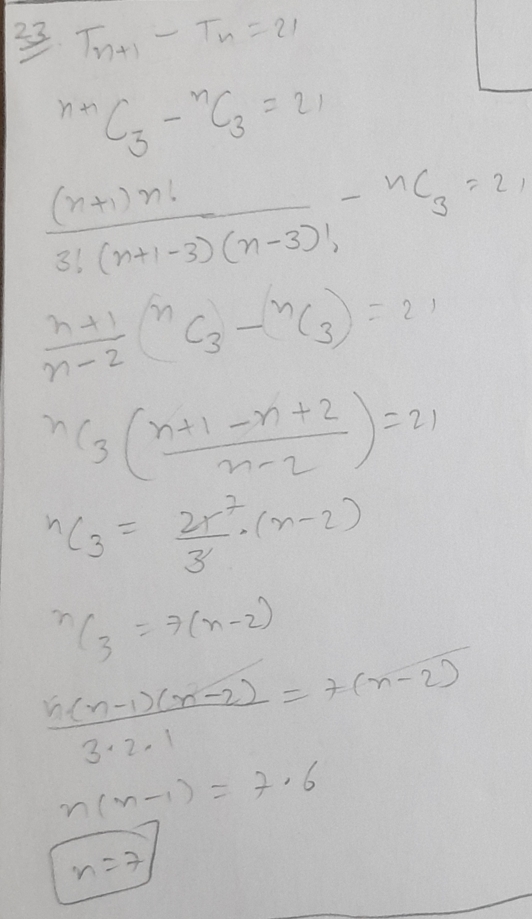 23. Tn+1 - Tn = 21
n+1C3 - nC3 = 21
(n+1)n! / 3! (n+1-3)(n-3)! - nC3 = 21
n+1 / n-2 (nC3) - (nC3) = 21
nC3 (n+1-n+2 / n-2) = 21
nC3 = 21 7 / 3 . (n-2)
nC3 = 7(n-2)
n(n-1)(n-2) / 3.2.1 = 7(n-2)
n(n-1) = 7.6
n=7